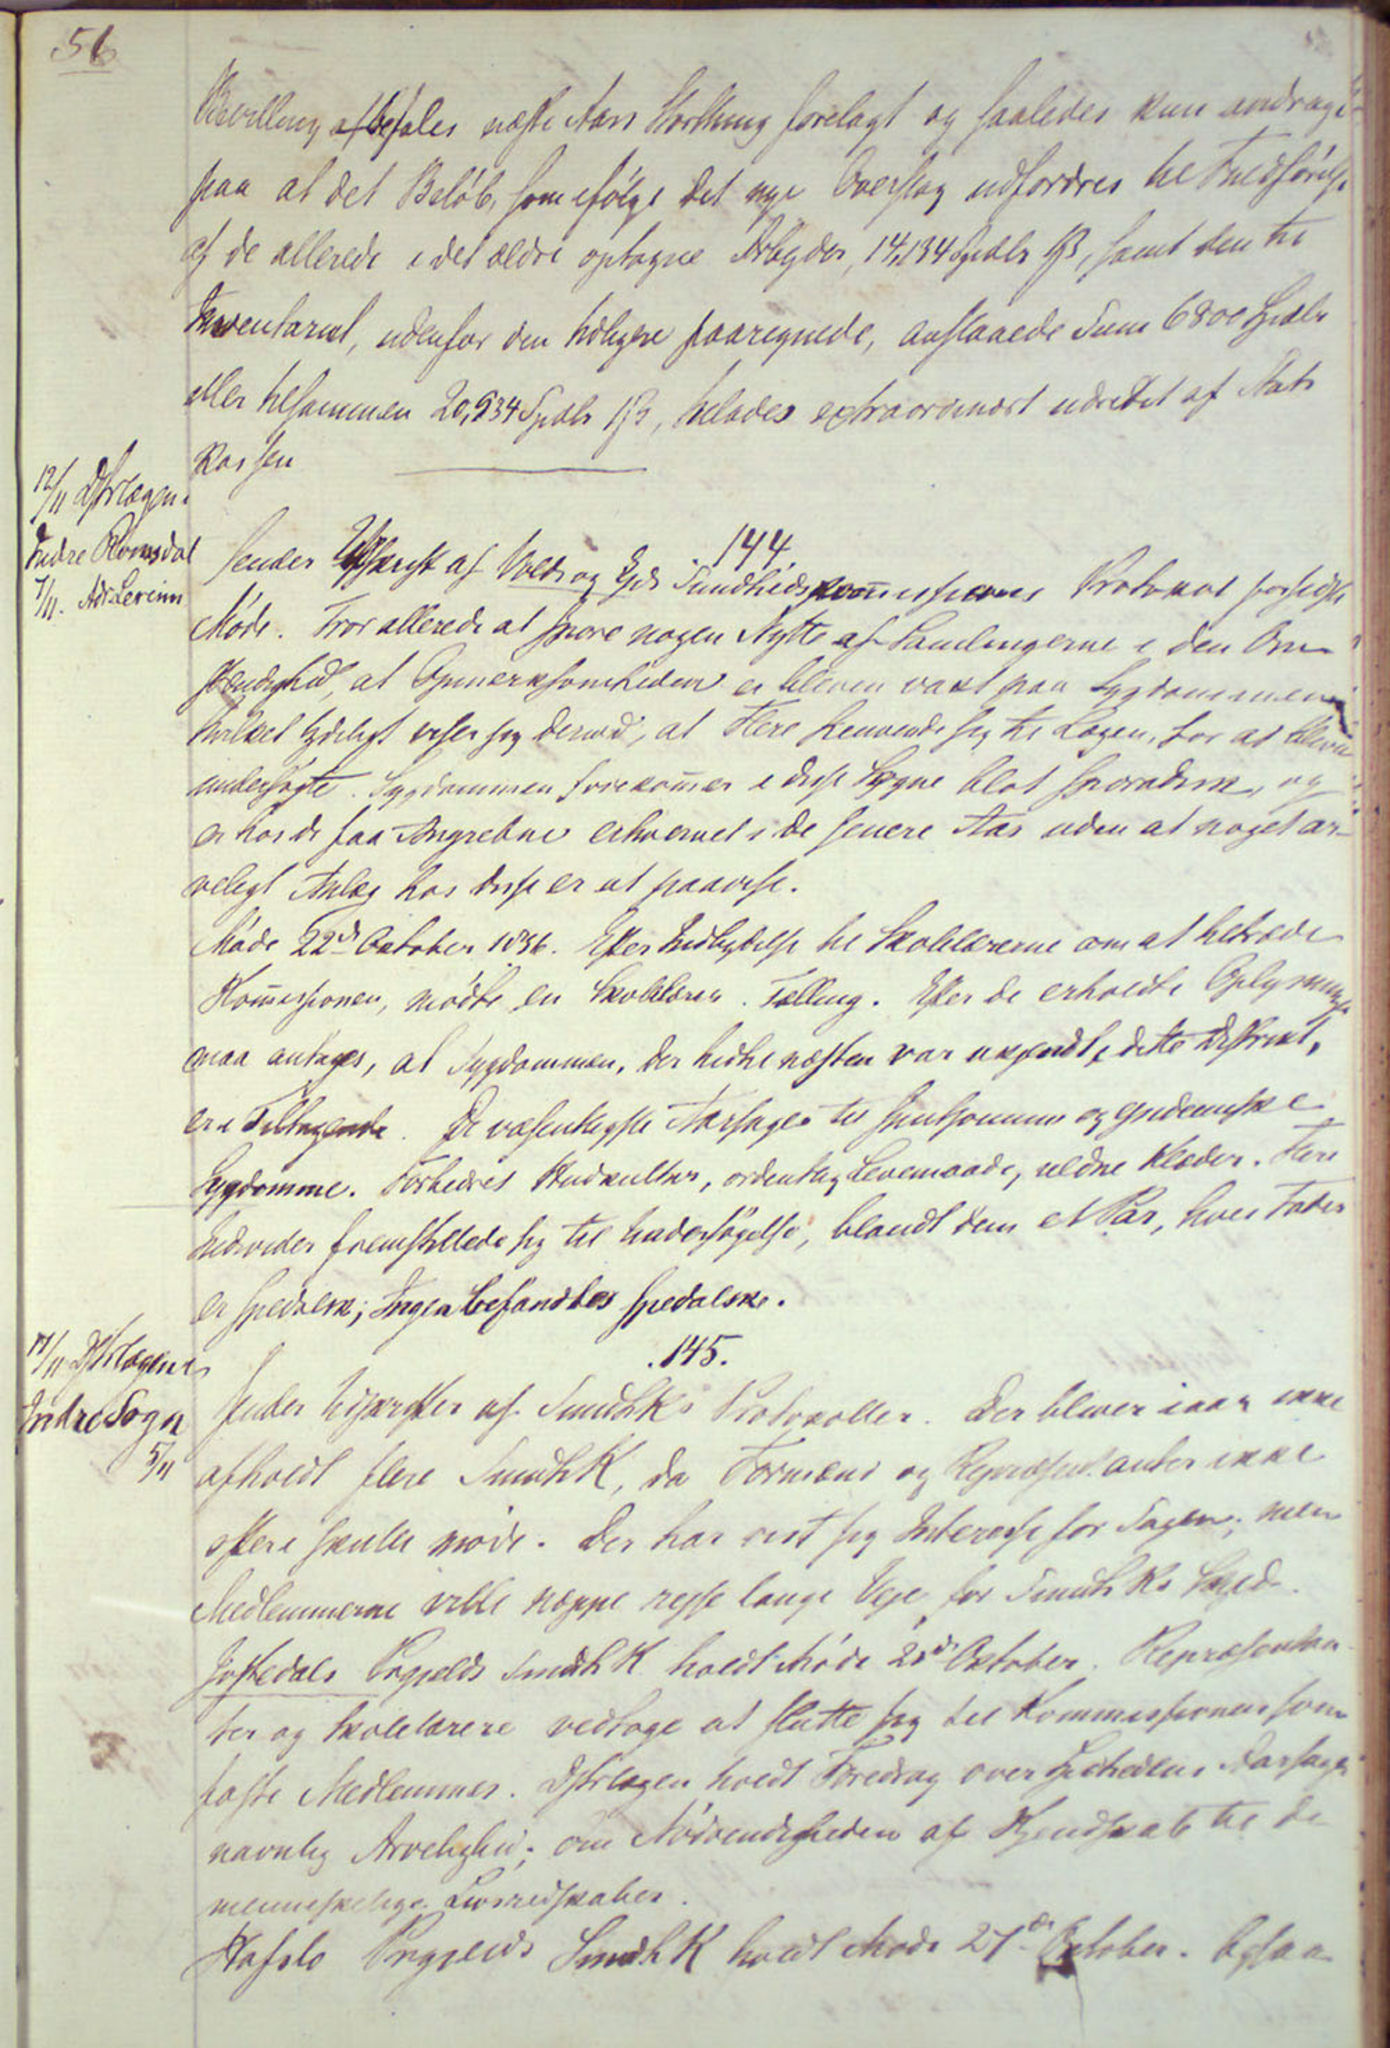 56
Bevilling afbefales næste Aars Storthing forelagt og saaledes kun andrage
paa at det Beløb, som ifølge det nye Overslag udfordres til Fuldførelse
af de allerede i det ældre optagne Arbeyder, 14,134 Spdlr , samt den til
Inventariet, udenfor den tidligere paaregnede, anslaaede Sum 6800 Spdlr
eller tilsammen 20,934 Spdlr , tillades extraordinært udredet af Stats
kassen
12/11 Dstrlægen i
Indre Romsdal
7/11. Adr Levinn
144
Sender Udskrift af Volds og Eids Sundhedskom̅issioners Protokol for sidste
Møde. Tror allerede at spore nogen Nytte af Samlingerne i den Om-
stændighed, at Opmerksomheden er bleven vakt paa Sygdommen
hvilket tydeligt viser sig derved, at Flere henvende sig til Lægen, for at blive
undersøgte. Sygdommen forekom̅er i disse Bygne blot sporadisk, og
er hos de faa Angrebne erhvervet i de senere Aar uden at noget ar-
veligt Anlæg hos disse er at paavise.
Møde 22de October 1856. Efter Indbydelse til Skolelærerne om at tiltræde
Kom̅issionen, mødte en Skolelærer. Tælling. Efter de erholdte Oplysninger
maa antages, at Sygdommen, der hidtil næsten var ukjendt i dette Distrikt,
er i Tiltagende. De væsentligste Aarsager til Sygdomme og epidemiske
Sygdomme. Forbedret Hudkultur, ordentlig Levemaade, uldne Klæder. Flere
Individer fremstillede sig til Undersøgelse, blandt dem et Par, hvis Fader
er spedalsk; Ingen befandtes spedalske.
17/11 Dstrlægen i
Indre Sogn
5/11
.145.
Sender Udskrifter af SundhKs Protokoller. Der bliver iaar ikke
afholdt flere SundhK, da Formænd og Repræsentanter ikke
oftere skulle møde. Der har vist sig Interesse for Sagen; men
Medlemmerne ville neppe reise lange Veje for SundhKs Skyld.
Jostedals Prgjelds SundhK holdt Møde 23de Oktober. Repræsentan-
ter og Skolelærere vedtoge at slutte sig til Kommissionen som
faste Medlemmer. Dstrlægen holdt Foredrag over Spedalskhedens Aarsager
navnlig Arvelighed; om Nødvendigheden af Kjendskab til de
menneskelige Livsredskaber.
Hafslo Prgjelds SundhK holdt Møde 27de Oktober. Ogsaa